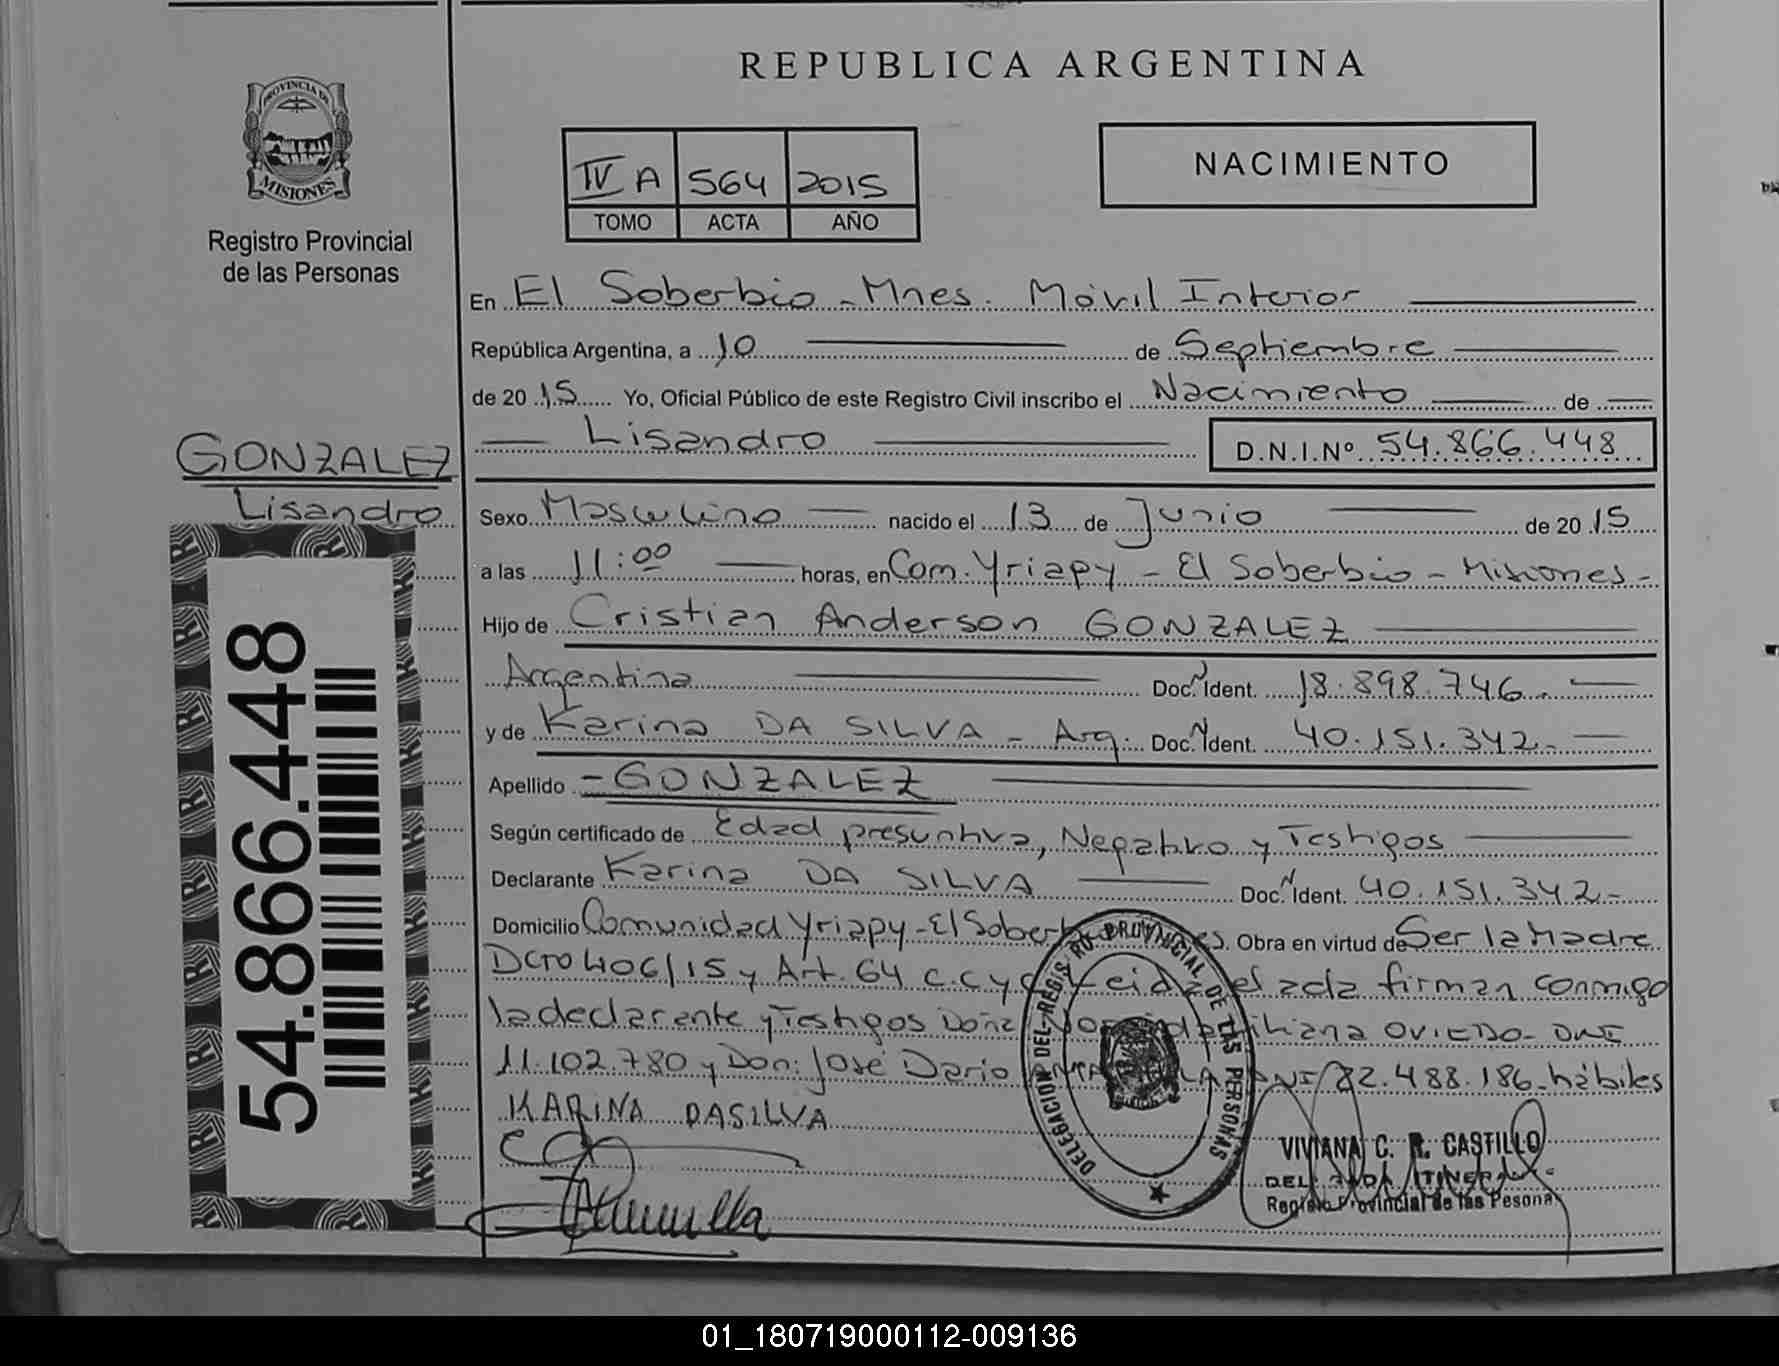 REPUBLICA ARGENTINA
PROVINCIA DE
MISIONES
Registro Provincial
de las Personas
IV A 564 2015
TOMO ACTA AÑO
NACIMIENTO
En El Soberbio - Mnes. Móvil Interior
República Argentina, a 10 de Septiembre
de 2015 Yo, Oficial Público de este Registro Civil inscribo el Nacimiento de
Lisandro D.N.I.Nº 54.866.448
GONZALEZ
Lisandro
54.866.448
Sexo Masculino nacido el 13 de Junio de 2015
a las 11:00 horas, en Com. Yriapy - El Soberbio - Misiones -
Hijo de Cristian Anderson GONZALEZ
Argentina Doc. N Ident. 18.898.746.-
y de Karina DA SILVA - Arg. Doc. N Ident. 40.151.342.-
Apellido - GONZALEZ
Según certificado de Edad presuntiva, Negativo y Testigos
Declarante Karina DA SILVA Doc. N Ident. 40.151.342.-
Domicilio Comunidad Yriapy - El Soberb s. Obra en virtud de Ser la Madre
DCTO 406/15 y Art. 64 C.C y C Leida el acta firman conmigo
la declarante y Testigos Doña OVIEDO - DNI
11.102.780 y Don: José Dario DNI 22.488.186 - hábiles
KARINA DASILVA
DELEGACION DEL REGISTRO PROVINCIAL DE LAS PERSONAS
VIVIANA C. R. CASTILLO
Registro Provincial de las Pesonas
01_180719000112-009136